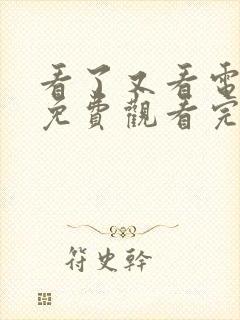 看了又看電
免費觀看完
符史幹